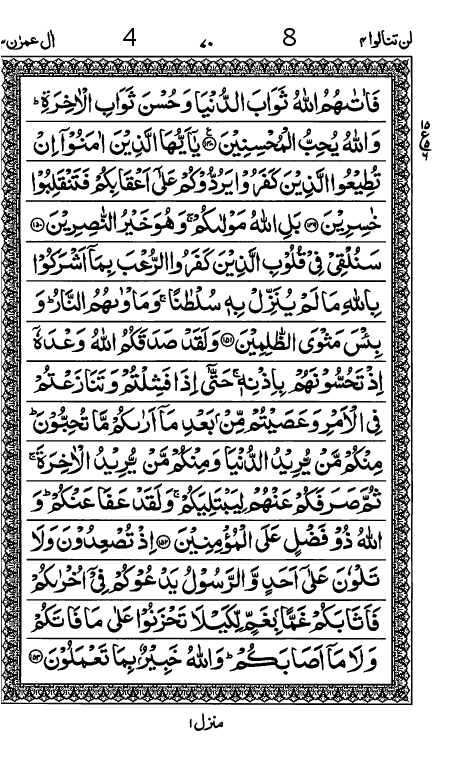 لن تنالوا ۴ 8 ۷۰ 4 اٰل عمرٰن ۳
فَاٰتٰىهُمُ اللّٰهُ ثَوَابَ الدُّنْيَا وَحُسْنَ ثَوَابِ الْاٰخِرَةِ ؕ
وَاللّٰهُ يُحِبُّ الْمُحْسِنِيْنَ ﴿۱۴۸﴾ يٰۤاَيُّهَا الَّذِيْنَ اٰمَنُوْۤا اِنْ
تُطِيْعُوا الَّذِيْنَ كَفَرُوْا يَرُدُّوْكُمْ عَلٰۤى اَعْقَابِكُمْ فَتَنْقَلِبُوْا
خٰسِرِيْنَ ﴿۱۴۹﴾ بَلِ اللّٰهُ مَوْلٰٮكُمْ ۚ وَهُوَ خَيْرُ النّٰصِرِيْنَ ﴿۱۵۰﴾
سَنُلْقِىْ فِىْ قُلُوْبِ الَّذِيْنَ كَفَرُوا الرُّعْبَ بِمَاۤ اَشْرَكُوْا
بِاللّٰهِ مَا لَمْ يُنَزِّلْ بِهٖ سُلْطٰنًا ۚ وَمَاْوٰٮهُمُ النَّارُ ؕ وَ
بِئْسَ مَثْوَى الظّٰلِمِيْنَ ﴿۱۵۱﴾ وَلَقَدْ صَدَقَكُمُ اللّٰهُ وَعْدَهٗۤ
اِذْ تَحُسُّوْنَهُمْ بِاِذْنِهٖ ۚ حَتّٰۤى اِذَا فَشِلْتُمْ وَتَنَازَعْتُمْ
فِى الْاَمْرِ وَعَصَيْتُمْ مِّنْۢ بَعْدِ مَاۤ اَرٰٮكُمْ مَّا تُحِبُّوْنَ ؕ
مِنْكُمْ مَّنْ يُّرِيْدُ الدُّنْيَا وَمِنْكُمْ مَّنْ يُّرِيْدُ الْاٰخِرَةَ ۚ
ثُمَّ صَرَفَكُمْ عَنْهُمْ لِيَبْتَلِيَكُمْ ۚ وَلَقَدْ عَفَا عَنْكُمْ ؕ وَ
اللّٰهُ ذُوْ فَضْلٍ عَلَى الْمُؤْمِنِيْنَ ﴿۱۵۲﴾ اِذْ تُصْعِدُوْنَ وَلَا
تَلْوٗنَ عَلٰۤى اَحَدٍ وَّالرَّسُوْلُ يَدْعُوْكُمْ فِىْۤ اُخْرٰٮكُمْ
فَاَثَابَكُمْ غَمًّاۢ بِغَمٍّ لِّكَيْلَا تَحْزَنُوْا عَلٰى مَا فَاتَكُمْ
وَلَا مَاۤ اَصَابَكُمْ ؕ وَاللّٰهُ خَبِيْرٌۢ بِمَا تَعْمَلُوْنَ ﴿۱۵۳﴾
منزل ۱